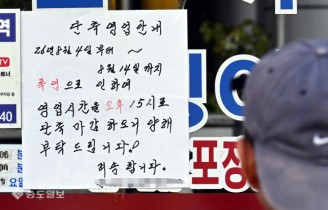 단축영업안내
26년8월4일부터 ~
8월14일까지
폭염으로 인하여
영업시간을 오후 15시로
단축 마감 하오니 양해
부탁 드립니다.
죄송합니다.
역
TV
40
요일
포장
중도일보